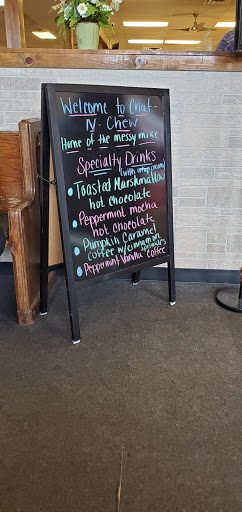 Welcome to Chat-
N-Chew
Home of the messy mike
Specialty Drinks
(with whip cream)
• Toasted Marshmallow
hot chocolate
• Peppermint mocha
hot chocolate
• Pumpkin Caramel
coffee w/cinnamon
sprinkles
• Peppermint Vanilla coffee